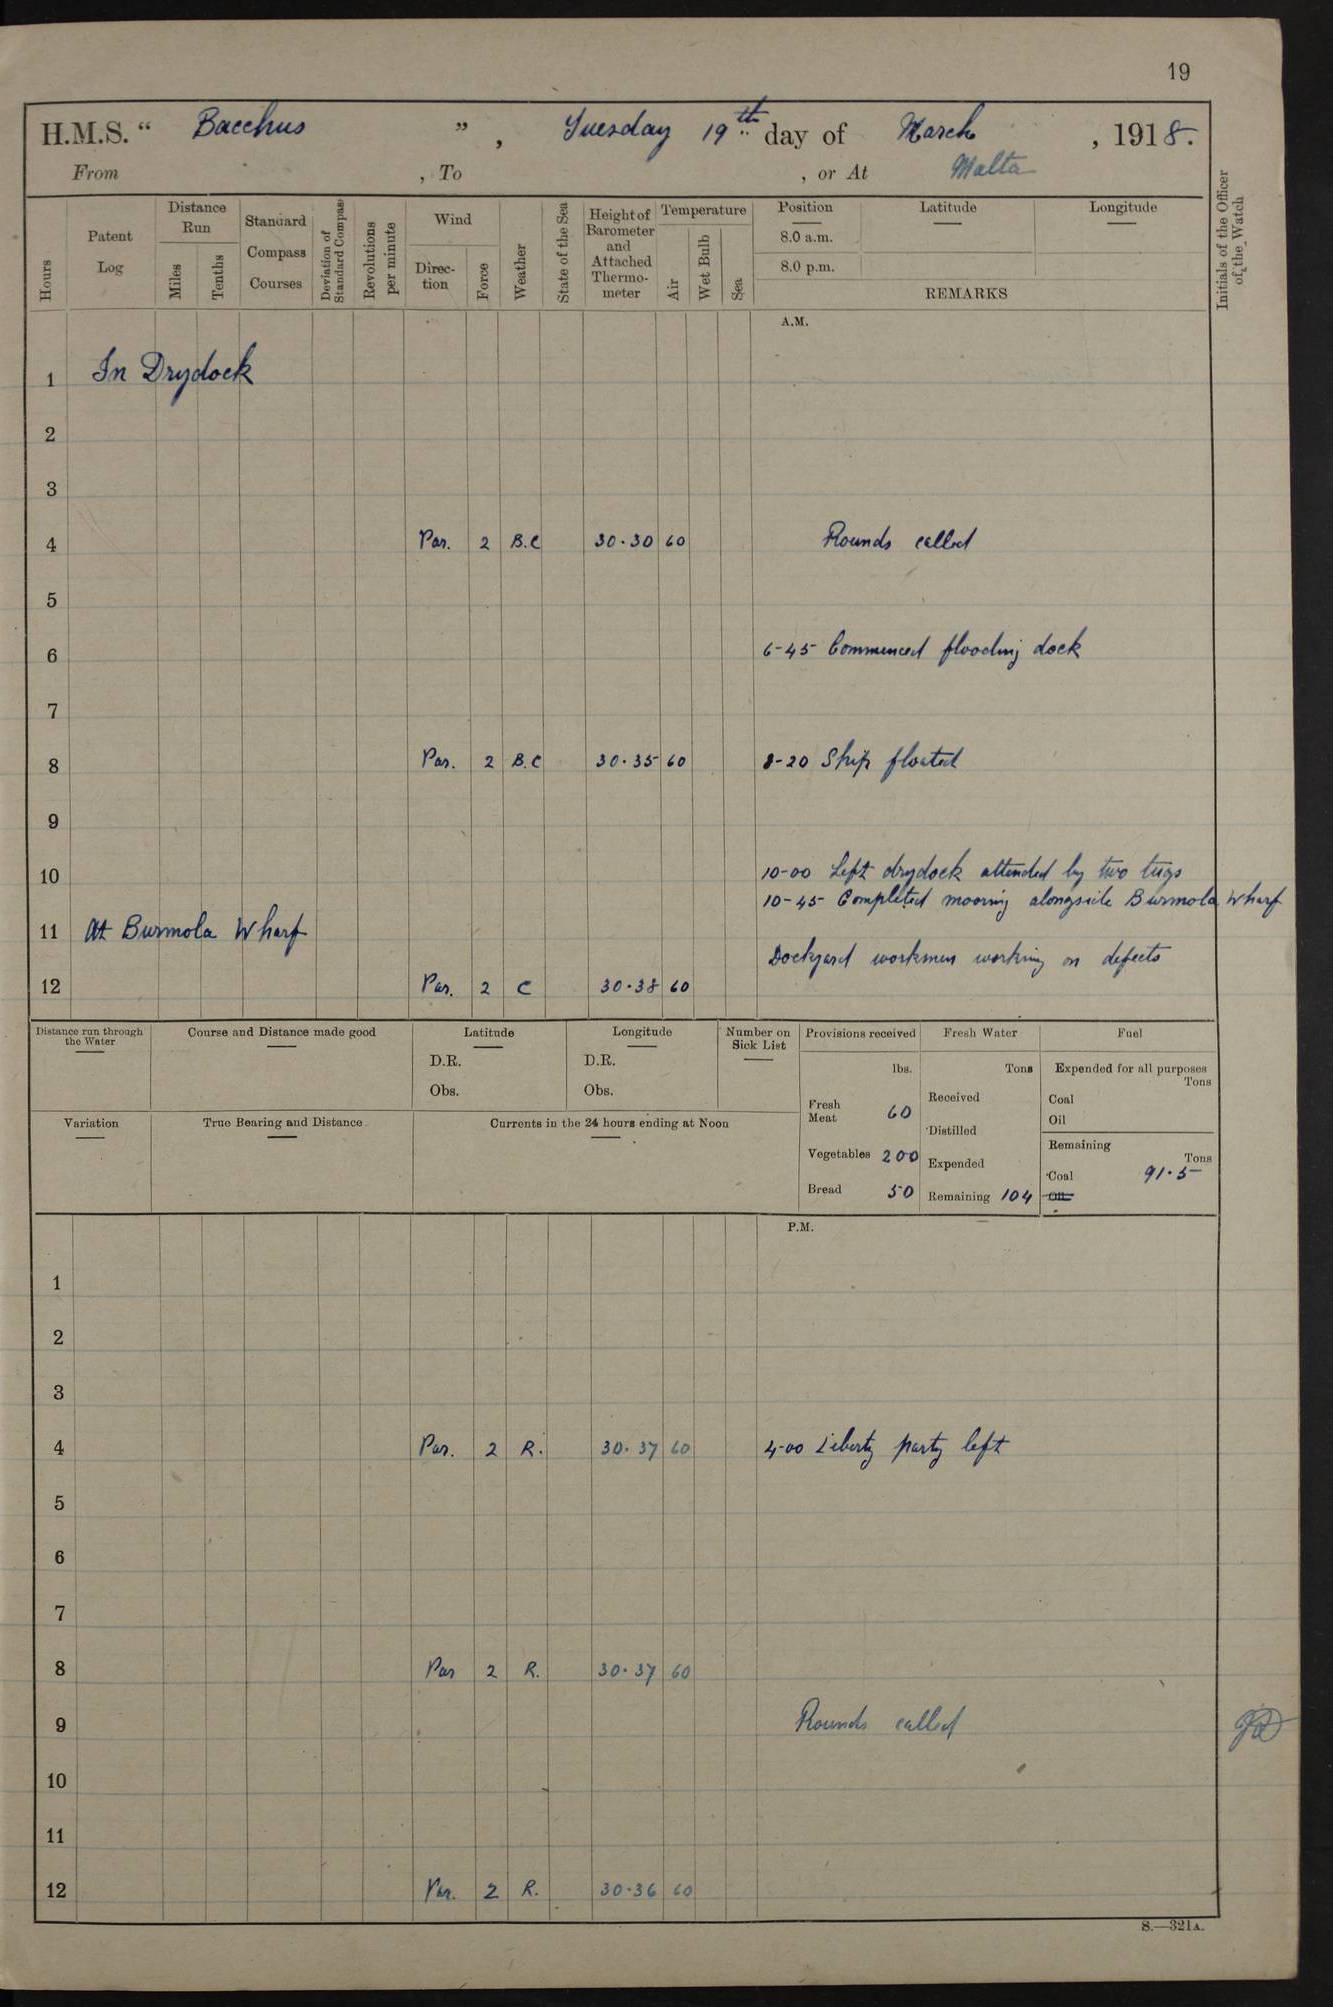 19
H.M.S. “ Bacchus ” , Tuesday 19th day of March , 1918.
From , To , or At Malta
Hours
Patent Log
Distance Run
Miles
Tenths
Standard Compass Courses
Deviation of Standard Compass
Revolutions per minute
Wind
Direc-tion
Force
Weather
State of the Sea
Height of Barometer and Attached Thermo-meter
Temperature
Air
Wet Bulb
Sea
Position
8.0 a.m.
8.0 p.m.
Latitude
Longitude
REMARKS
Initials of the Officer of the Watch
A.M.
1 In Drydock
2
3
4 Var. 2 B.C 30.30 60 Rounds called
5
6 6-45 Commenced flooding dock
7
8 Var. 2 B.C 30.35 60 8-20 Ship floated
9
10 10-00 Left drydock attended by two tugs
10-45 Completed mooring alongside Burmola Wharf
11 At Burmola Wharf
Dockyard workmen working on defects
12 Var. 2 C 30.38 60
Distance run through the Water
Course and Distance made good
Latitude
D.R.
Obs.
Longitude
D.R.
Obs.
Number on Sick List
Variation
True Bearing and Distance
Currents in the 24 hours ending at Noon
Provisions received
lbs.
Fresh Meat 60
Vegetables 200
Bread 50
Fresh Water
Tons
Received
Distilled
Expended
Remaining 104
Fuel
Expended for all purposes
Tons
Coal
Oil
Remaining
Tons
Coal 91.5
Oil
P.M.
1
2
3
4 Var. 2 R. 30.37 60 4-00 Liberty party left
5
6
7
8 Var 2 R. 30.37 60
9 Rounds called
10
11
12 Var. 2 R. 30.36 60
S.—321A.